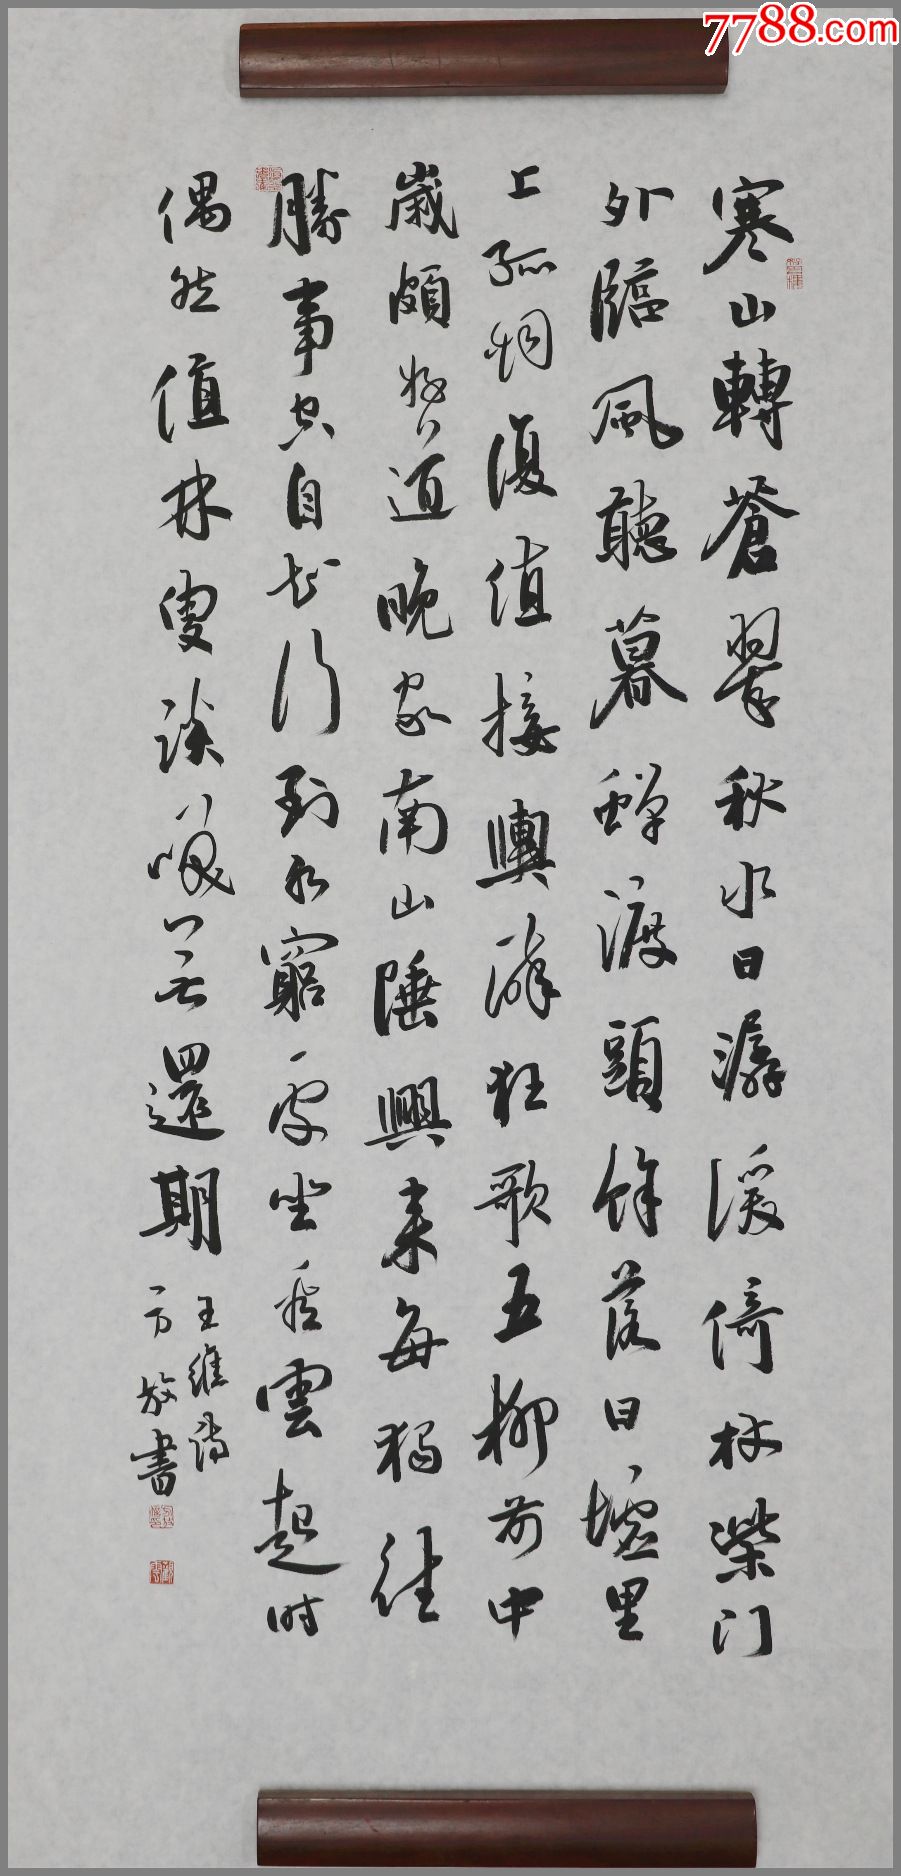 7788.com
寒山轉蒼翠秋水日潺湲倚杖柴门
外臨風聽暮蟬渡頭餘落日墟里
上孤烟復值接輿醉狂歌五柳前中
歲頗好道晚家南山陲興来每獨往
勝事空自知行到水窮處坐看雲起时
偶然值林叟談咲無還期
王維诗
方放書